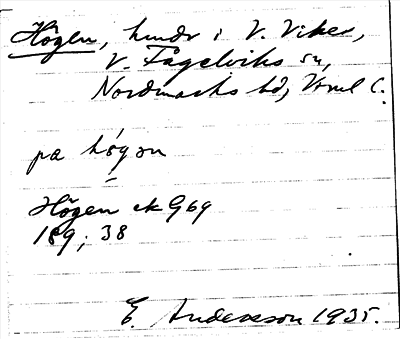 Högen, hmdr i V. Viker,
V. Fågelviks sn,
Nordmarks hd, Vrml C.
pa hǿgən
Högen ek G69
189; 38
E. Andersson 1935.